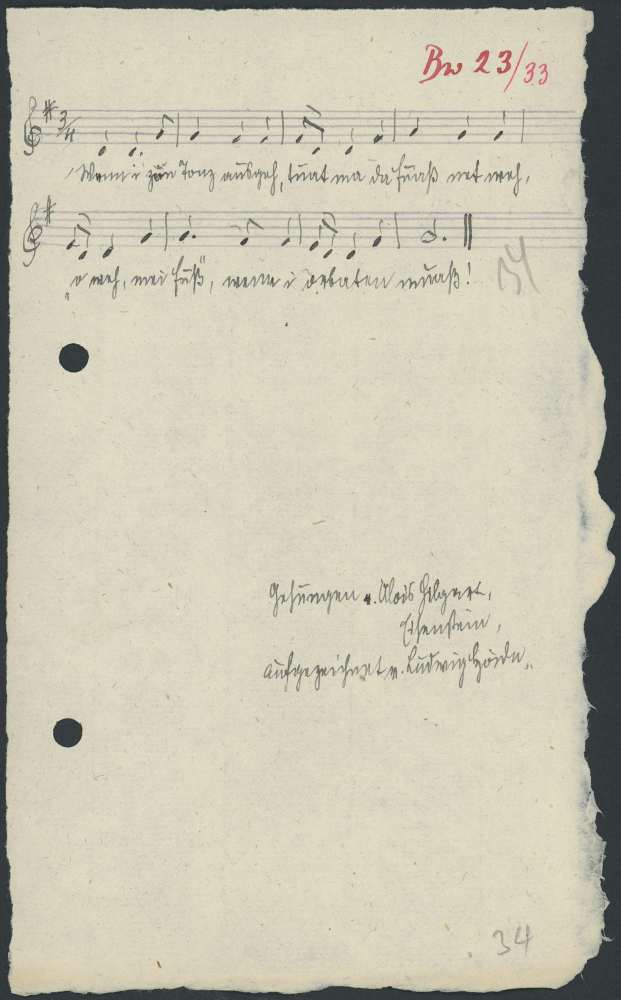 Bw 23/33
3/4
Wenn i zun Tonz ausgeh, tuat ma da Fuaß net weh,
"o weh, mei Fuß", wenn i orbaten muaß!
34
Gesungen v. Alois Hilgart,
Eisenstein,
aufgezeichnet v. Ludwig Hoidn.
34